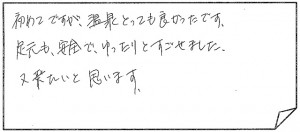 初めてですが、温泉とっても良かったです。
足元も、安全で、ゆったりとすごせました。
又来たいと思います。